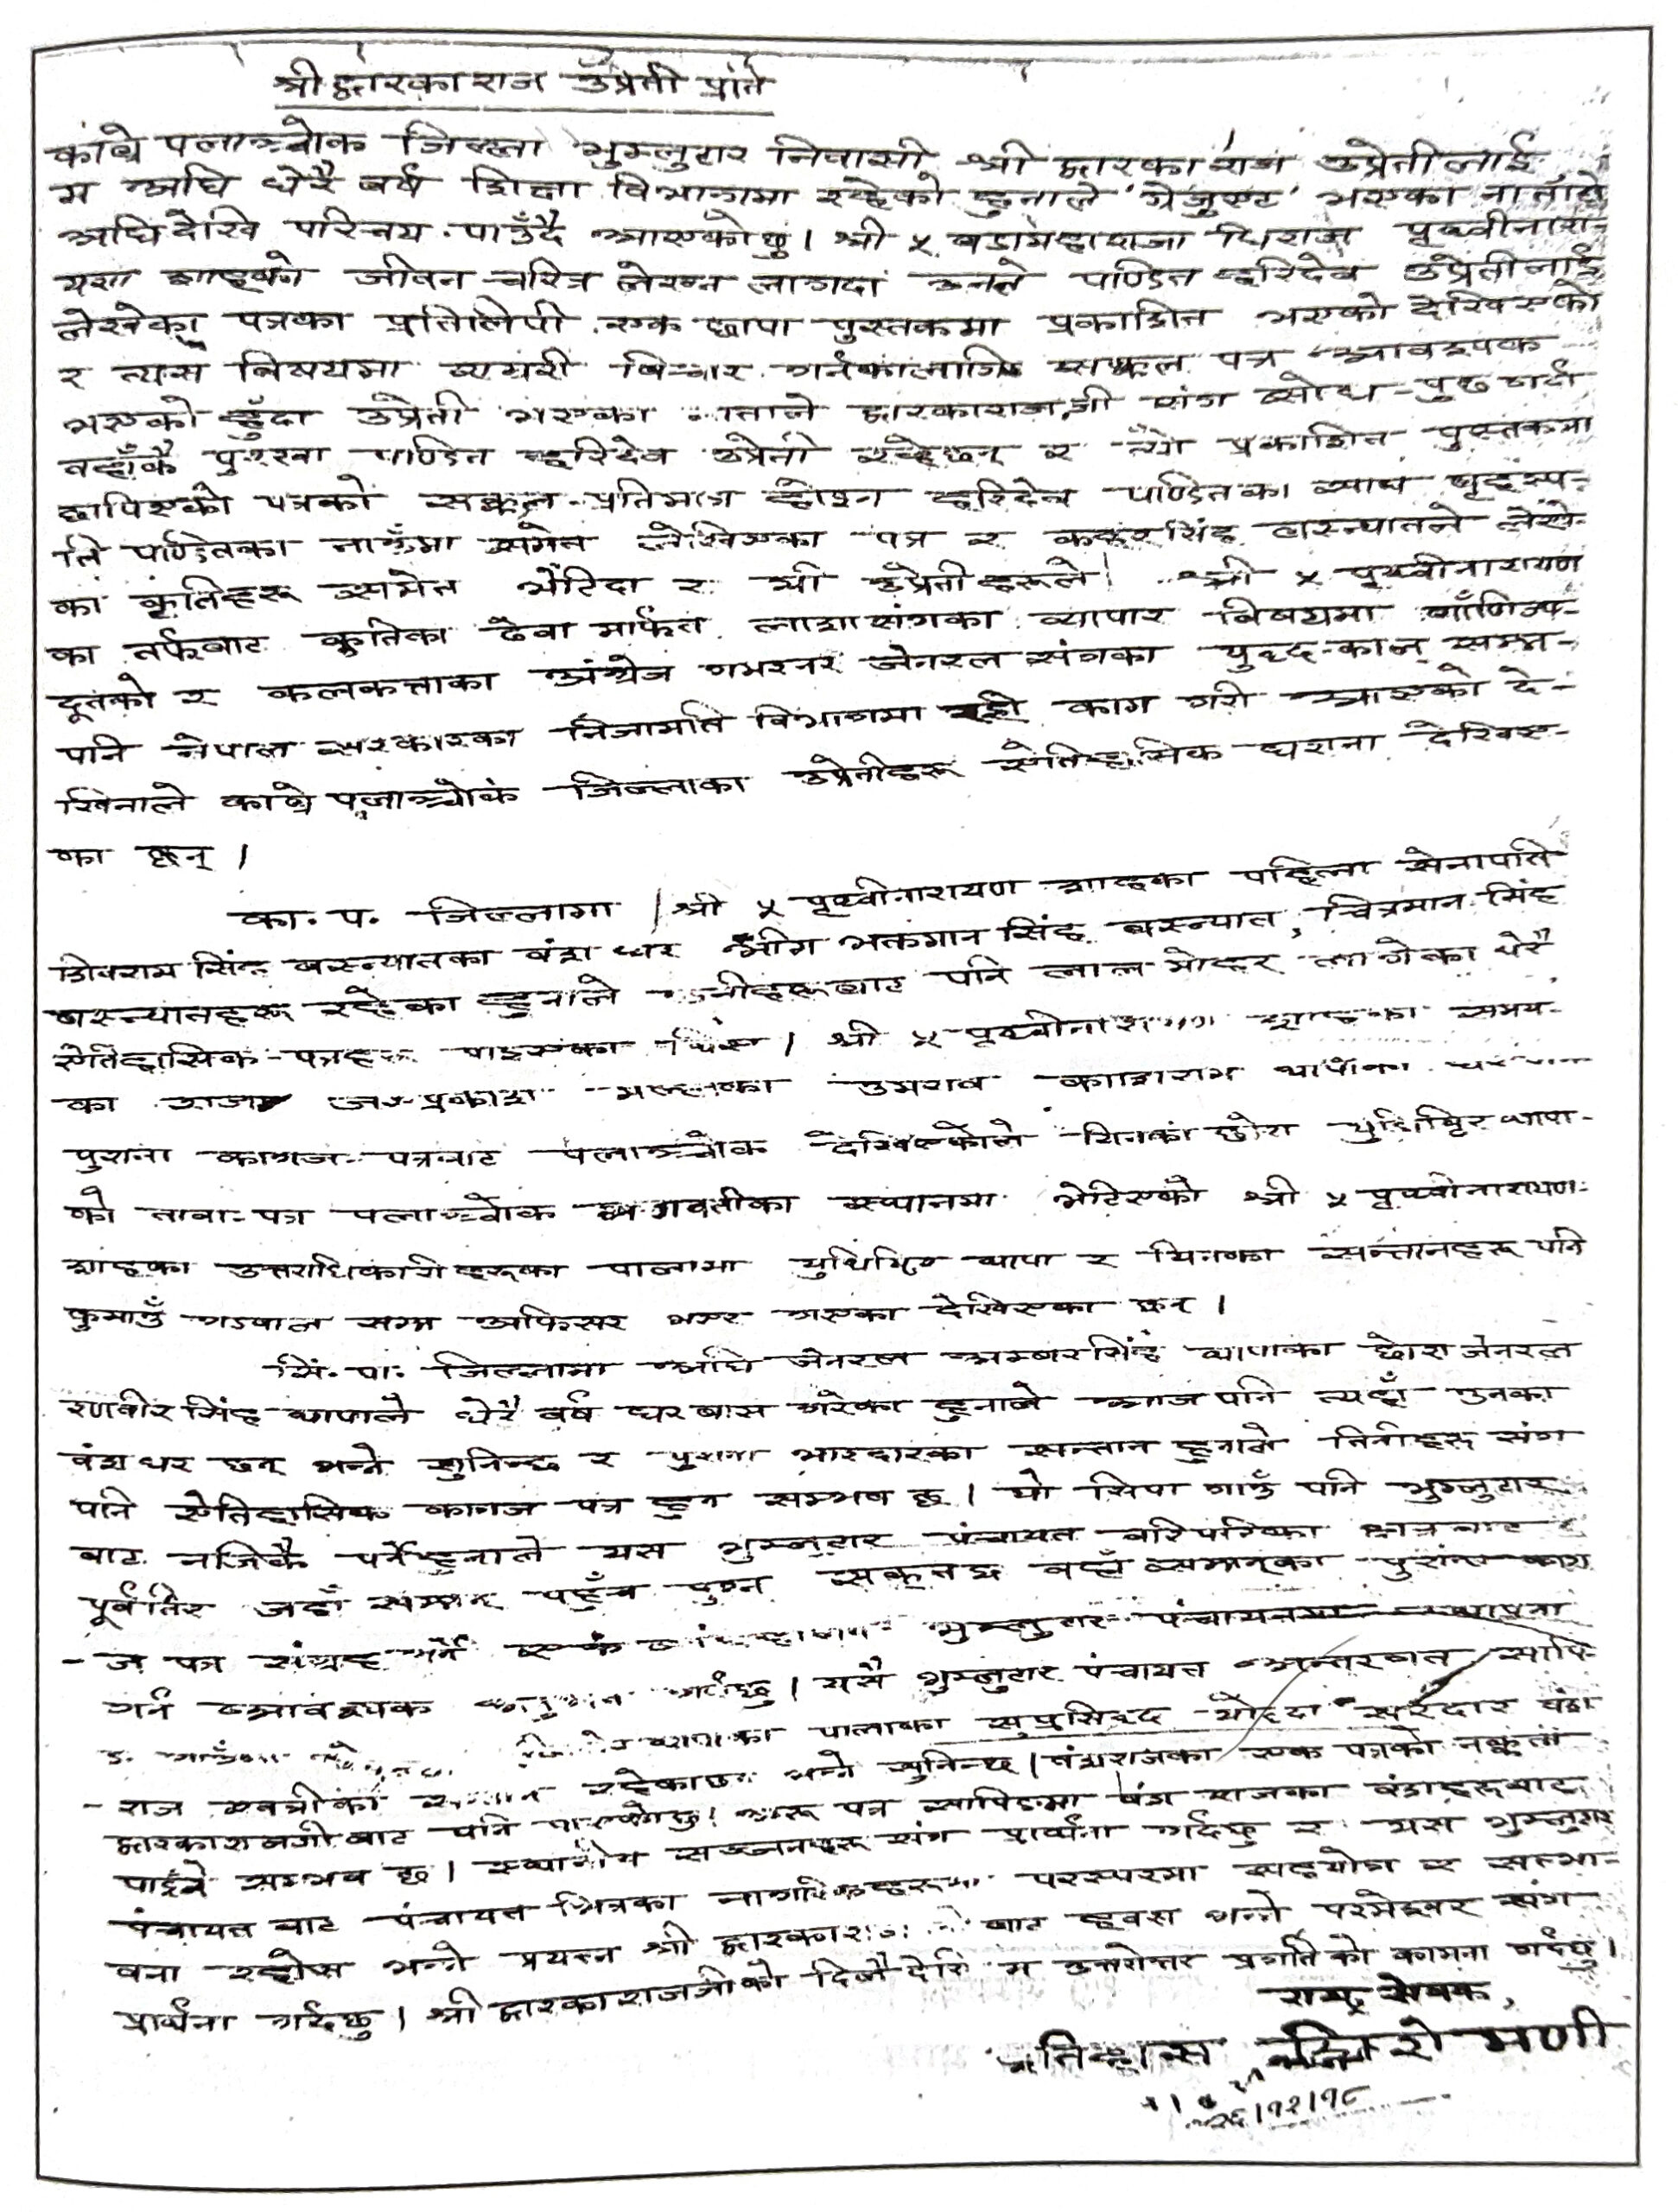 श्री द्वारका राज उप्रेती प्रति
काभ्रे पलाञ्चोक जिल्ला भुम्लुटार निवासी श्री द्वारका राज उप्रेतीलाई
म अघि धेरै वर्ष शिक्षा विभागमा रहेको हुनाले 'ग्रेजुएट' भएका नाताले
अघि देखि परिचय पाउँदै आएकोछु। श्री ५ बडामहाराजा धिराज पृथ्वीनारा-
यण शाहको जीवन-चरित्र लेख्न लाग्दा उनले पण्डित हरिदेव उप्रेतीलाई
लेखेका पत्रका प्रतिलिपी एक छापा पुस्तकमा प्रकाशित भएको देखिएको
र त्यस विषयमा विचार गर्नका लागि सक्कल पत्र आवश्यक
भएको हुँदा उप्रेती भएका नाताले द्वारकाराजजी संग सोध-पुछ गर्दा
वहाँकै पुर्खा पण्डित हरिदेव उप्रेती रहेछन् र त्यो प्रकाशित पुस्तकमा
छापिएको पत्रको सक्कल प्रतिमात्र होइन हरिदेव पण्डितका साथ बृहस्प-
ति पण्डितका नाउँमा समेत लेखिएका पत्र र कहर सिंह बस्न्यातले लेखे-
का कृतिहरू समेत भेटिदा र यी उप्रेतीहरूले श्री ५ पृथ्वीनारायण
का तर्फबाट कुतिका ढेवा मार्फत ल्हाशासंगका व्यापार विषयमा बाँणिज्य-
दूतको र कलकत्ताका अंग्रेज गभरनर जेनरल संगका युद्ध-काल सम्म-
पनि नेपाल सरकारका निजामति विभागमा रही काम गरी आएको दे-
खिनाले काभ्रे पलाञ्चोक जिल्लाका उप्रेतीहरू ऐतिहासिक घराना देखिए-
का छन् ।
का. प. जिल्लामा श्री ५ पृथ्वीनारायण शाहका पहिला सेनापति
शिवराम सिंह बस्न्यातका वंश धर भक्तमान सिंह बस्न्यात, चित्रमान सिंह
बस्न्यातहरू रहेका हुनाले उनीहरूबाट पनि लाल मोहर लागेका धेरै
ऐतिहासिक-पत्रहरू पाइएका थिए । श्री ५ पृथ्वीनारायण शाहका समय-
का राजा जयप्रकाश मल्लका उमराव काशीराम थापाका
पुराना कागज-पत्रबाट पलाञ्चोक देखिएकोले यिनका छोरा युधिष्ठिर थापा-
को तामा-पत्र पलाञ्चोक भगवतीका स्थानमा भेटिएको श्री ५ पृथ्वीनारायण
शाहका उत्तराधिकारीहरूका पालामा युधिष्ठिर थापा र यिनका सन्तानहरू पनि
कुमाउँ गडवाल सम्म अफिसर भएर गएका देखिएका छन् ।
सिं. पा. जिल्लामा अघि जेनरल अम्बरसिंह थापाका छोरा जेनरल
रणवीर सिंह थापाले धेरै वर्ष घर बास गरेका हुनाले आज पनि त्यहाँ उनका
वंश धर छन् भन्ने सुनिन्छ र पुराना भारदारका सन्तान हुनाले तिनीहरू संग
पनि ऐतिहासिक कागज पत्र हुन सम्भव छ । यो सिपा गाउँ पनि भुम्लुटार
बाट नजिकै पर्ने हुनाले यस भुम्लुटार पंचायत वरिपरिका
पूर्वतिर जहाँ सम्म पहुँच पुग्न सक्तछ वहाँ सम्मका पुराना काग
- ज पत्र संग्रह गर्ने एक भुम्लुटार पंचायतमा स्थापना
गर्न आवश्यक गर्दछु । यसै भुम्लुटार पंचायत अन्तरगत सापि-
ङ गाउँमा थापाका पालाका सुप्रसिद्ध योद्धा सरदार वंश
- राज खत्रीका सन्तान रहेकाछन् भन्ने सुनिन्छ । वंशराजका एक पत्रको नक्कल
द्वारकाराजजी बाट पनि पाएकोछु। अरू पत्र सापिङमा वंश राजका वंशहरूबाट
पाईने सम्भव छ । स्थानीय सज्जनहरू संग प्रार्थना गर्दछु र यस भुम्लुटार
पंचायत बाट पंचायत भित्रका नागरिकहरूमा परस्परमा सहयोग र सत्भा-
वना रहोस भन्ने प्रयत्न श्री द्वारकाराजजी बाट हवस भन्ने परमेश्वर संग
प्रार्थना गर्दछु । श्री द्वारकाराजजीको दिलै देखि म उत्तरोत्तर प्रगति को कामना गर्दछु।
राष्ट्र सेवक,
इतिहास शिरोमणी
२६।१२।१८